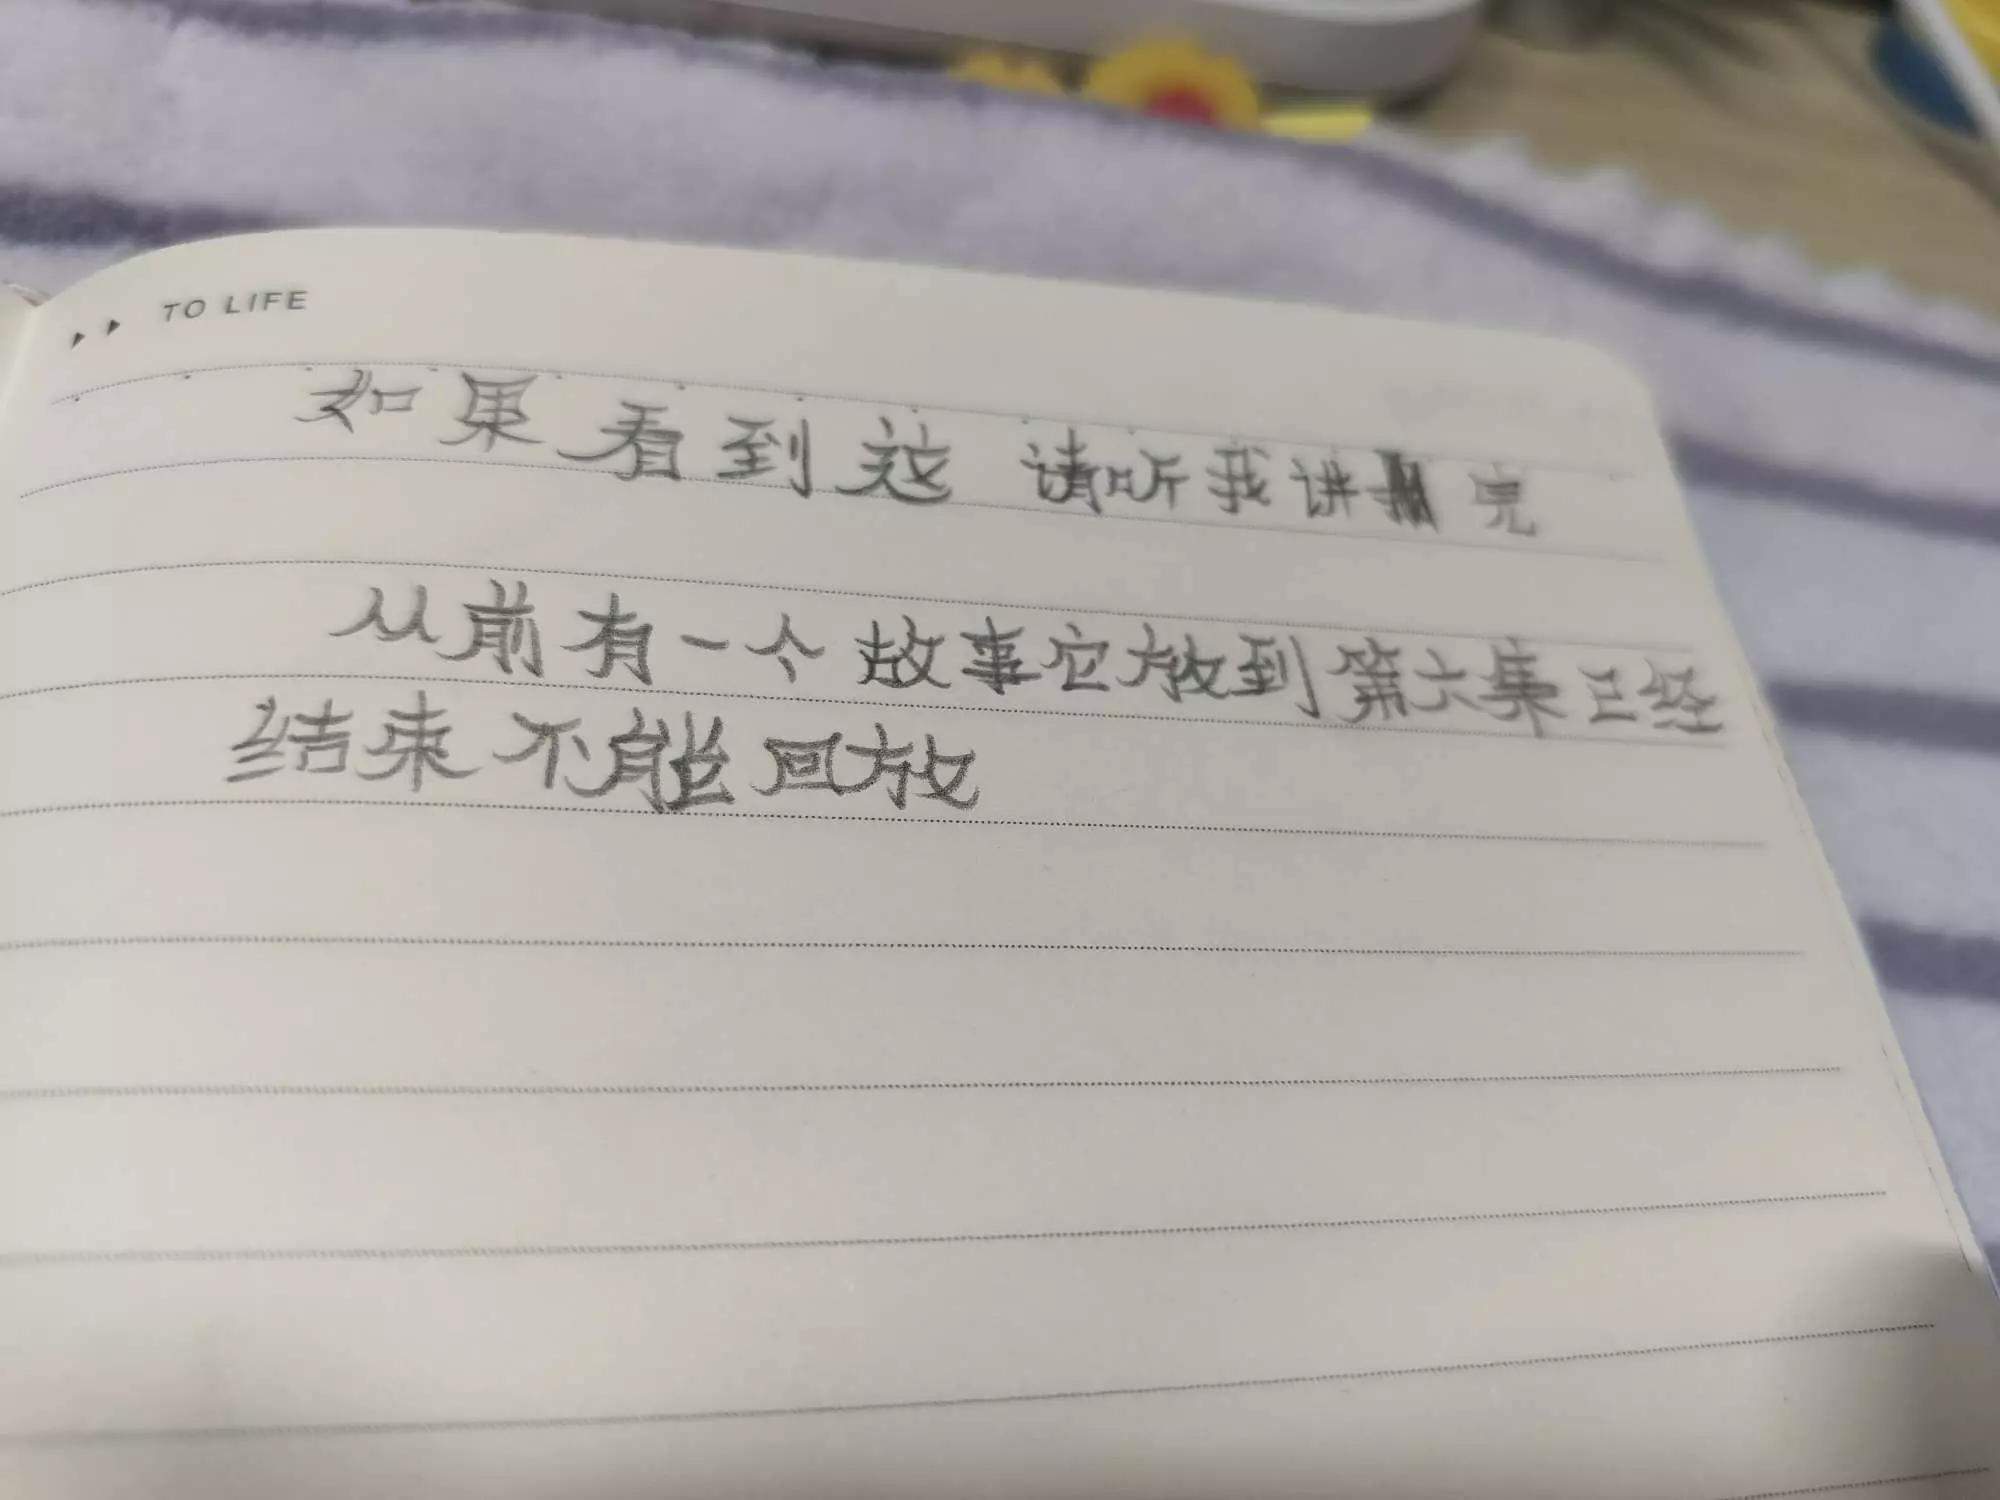 TO LIFE
如果看到这 请听我讲完
从前有一个故事它放到第六集已经
结束不能回放